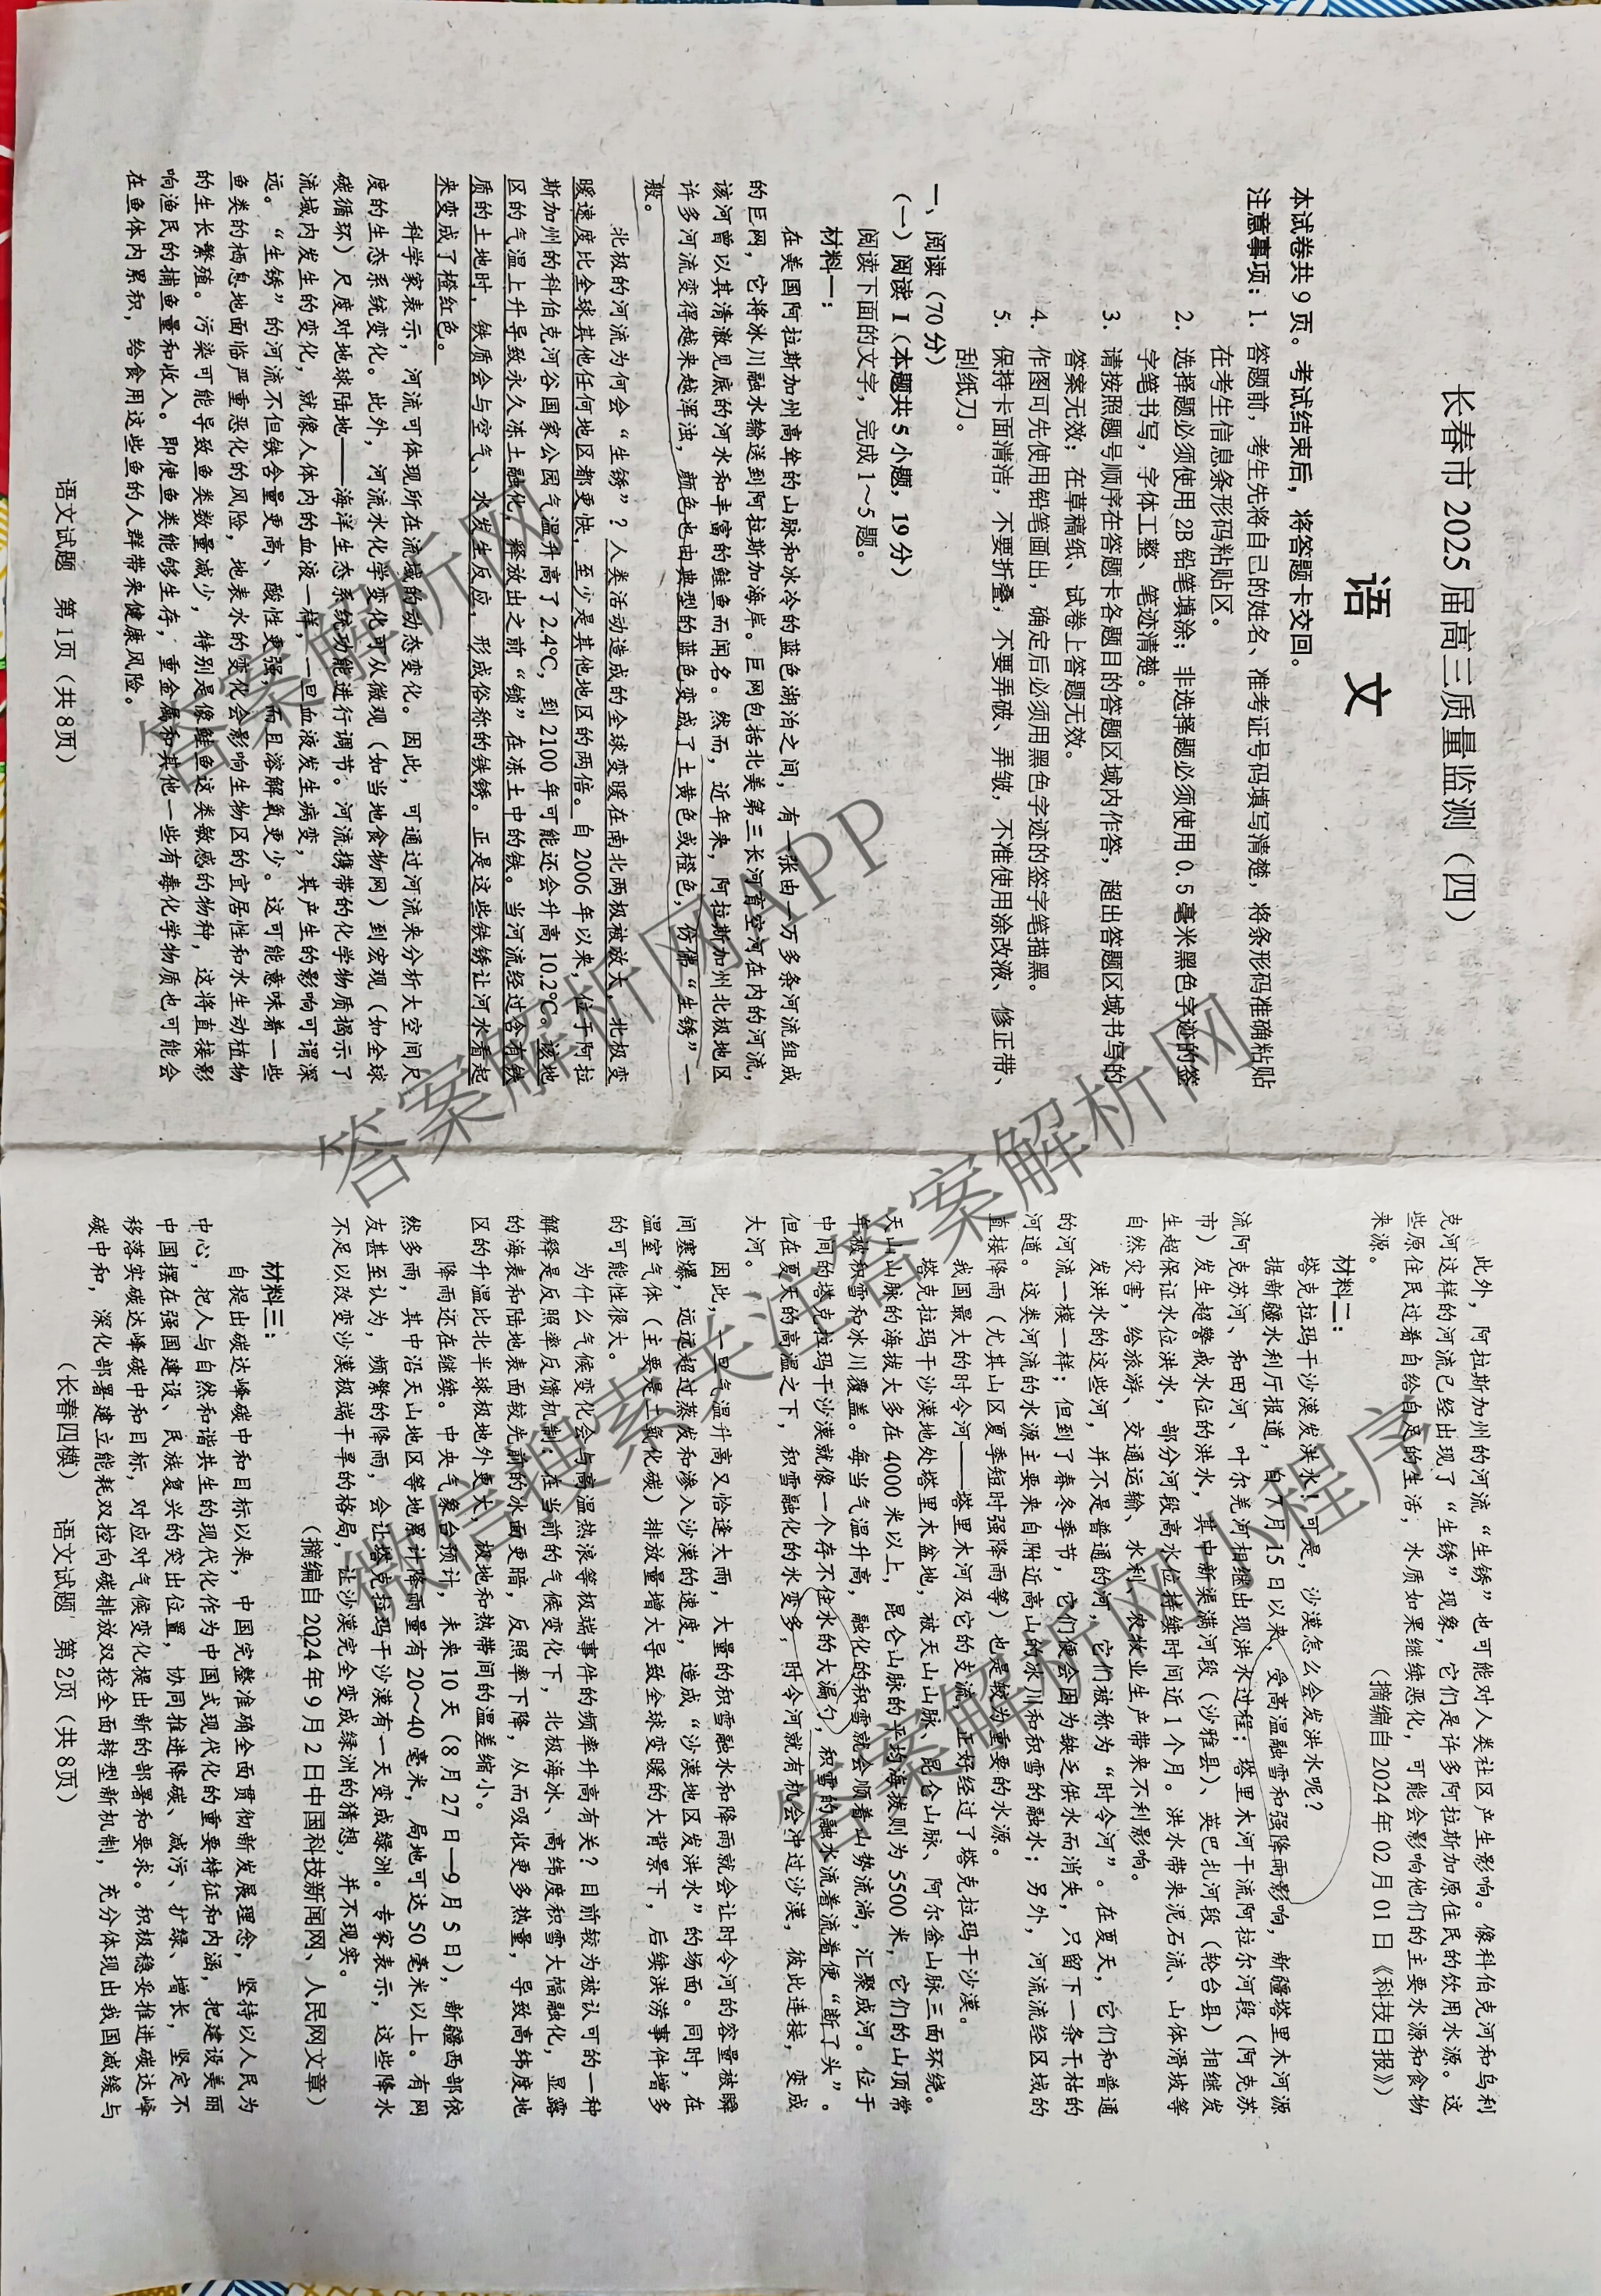 长春市 2025 届高三质量监测（四）
语 文
本试卷共 9 页。考试结束后，将答题卡交回。
注意事项：1. 答题前，考生先将自己的姓名、准考证号码填写清楚，将条形码准确粘贴
在考生信息条形码粘贴区。
2. 选择题必须使用 2B 铅笔填涂；非选择题必须使用 0.5 毫米黑色字迹的签
字笔书写，字体工整、笔迹清楚。
3. 请按照题号顺序在答题卡各题目的答题区域内作答，超出答题区域书写的
答案无效；在草稿纸、试卷上答题无效。
4. 作图可先使用铅笔画出，确定后必须用黑色字迹的签字笔描黑。
5. 保持卡面清洁，不要折叠，不要弄破、弄皱，不准使用涂改液、修正带、
刮纸刀。
一、阅读（70 分）
（一）阅读 I（本题共 5 小题，19 分）
阅读下面的文字，完成 1～5 题。
材料一：
在美国阿拉斯加州高耸的山脉和冰冷的蓝色湖泊之间，有一张由一万多条河流组成
的巨网，它将冰川融水输送到阿拉斯加海岸。巨网包括北美第三长河育空河在内的河流，
该河曾以其清澈见底的河水和丰富的鲑鱼而闻名。然而，近年来，阿拉斯加州北极地区
许多河流变得越来越浑浊，颜色也由典型的蓝色变成了土黄色或橙色，仿佛“生锈”一
般。
北极的河流为何会“生锈”？人类活动造成的全球变暖在南北两极被放大，北极变
暖速度比全球其他任何地区都更快，至少是其他地区的两倍。自 2006 年以来，位于阿拉
斯加州的科伯克河谷国家公园气温升高了 2.4℃，到 2100 年可能还会升高 10.2℃。该地
区的气温上升导致永久冻土融化，释放出之前“锁”在冻土中的铁。当河流经过含有铁
质的土地时，铁质会与空气、水发生反应，形成俗称的铁锈。正是这些铁锈让河水看起
来变成了橙红色。
科学家表示，河流可体现所在流域的动态变化。因此，可通过河流来分析大空间尺
度的生态系统变化。此外，河流水化学变化可从微观（如当地食物网）到宏观（如全球
碳循环）尺度对地球陆地——海洋生态系统功能进行调节。河流携带的化学物质揭示了
流域内发生的变化，就像人体内的血液一样，一旦血液发生病变，其产生的影响可谓深
远。“生锈”的河流不但铁含量更高、酸性更强，而且溶解氧更少。这可能意味着一些
鱼类的栖息地面临严重恶化的风险，地表水的变化会影响生物区的宜居性和水生动植物
的生长繁殖。污染可能导致鱼类数量减少，特别是像鲑鱼这类敏感的物种，这将直接影
响渔民的捕鱼量和收入。即使鱼类能够生存，重金属和其他一些有毒化学物质也可能会
在鱼体内累积，给食用这些鱼的人群带来健康风险。
语文试题 第 1 页（共 8 页）
此外，阿拉斯加州的河流“生锈”也可能对人类社区产生影响。像科伯克河和乌利
克河这样的河流已经出现了“生锈”现象，它们是许多阿拉斯加原住民的饮用水源。这
些原住民过着自给自足的生活，水质如果继续恶化，可能会影响他们的主要水源和食物
来源。
（摘编自 2024 年 02 月 01 日《科技日报》）
材料二：
塔克拉玛干沙漠发洪水！可是，沙漠怎么会发洪水呢？
据新疆水利厅报道，自 7 月 15 日以来，受高温融雪和强降雨影响，新疆塔里木河源
流阿克苏河、和田河、叶尔羌河相继出现洪水过程；塔里木河干流阿拉尔河段（阿克苏
市）发生超警戒水位的洪水，其中新渠满河段（沙雅县）、英巴扎河段（轮台县）相继发
生超保证水位洪水，部分河段高水位持续时间近 1 个月。洪水带来泥石流、山体滑坡等
自然灾害，给旅游、交通运输、水利、农牧业生产带来不利影响。
发洪水的这些河，并不是普通的河，它们被称为“时令河”。在夏天，它们和普通
的河流一模一样；但到了春冬季节，它们便会因为缺乏供水而消失，只留下一条干枯的
河道。这类河流的水源主要来自附近高山的冰川和积雪的融水；另外，河流流经区域的
直接降雨（尤其山区夏季短时强降雨等）也是较为重要的水源。
我国最大的时令河——塔里木河及它的支流，正好经过了塔克拉玛干沙漠。
塔克拉玛干沙漠地处塔里木盆地，被天山山脉、昆仑山脉、阿尔金山脉三面环绕。
天山山脉的海拔大多在 4000 米以上，昆仑山脉的平均海拔则为 5500 米，它们的山顶常
年被积雪和冰川覆盖。每当气温升高，融化的积雪就会顺着山势流淌，汇聚成河。位于
中间的塔克拉玛干沙漠就像一个存不住水的大漏勺，积雪的融水流着流着便“断了头”。
但在夏天的高温之下，积雪融化的水变多，时令河就有机会冲过沙漠，彼此连接，变成
大河。
因此，一旦气温升高又恰逢大雨，大量的积雪融水和降雨就会让时令河的容量被瞬
间塞爆，远远超过蒸发和渗入沙漠的速度，造成“沙漠地区发洪水”的场面。同时，在
温室气体（主要是二氧化碳）排放量增大导致全球变暖的大背景下，后续洪涝事件增多
的可能性很大。
为什么气候变化会与高温热浪等极端事件的频率升高有关？目前较为被认可的一种
解释是反照率反馈机制：在当前的气候变化下，北极海冰、高纬度积雪大幅融化，显露
的海表和陆地表面较先前的冰面更暗，反照率下降，从而吸收更多热量，导致高纬度地
区的升温比北半球极地外更大，极地和热带间的温差缩小。
降雨还在继续。中央气象台预计，未来 10 天（8 月 27 日—9 月 5 日），新疆西部依
然多雨，其中沿天山地区等地累计降雨量有 20～40 毫米，局地可达 50 毫米以上。有网
友甚至认为，频繁的降雨，会让塔克拉玛干沙漠有一天变成绿洲。专家表示，这些降水
不足以改变沙漠极端干旱的格局，让沙漠完全变成绿洲的猜想，并不现实。
（摘编自 2024 年 9 月 2 日中国科技新闻网、人民网文章）
材料三：
自提出碳达峰碳中和目标以来，中国完整准确全面贯彻新发展理念，坚持以人民为
中心，把人与自然和谐共生的现代化作为中国式现代化的重要特征和内涵，把建设美丽
中国摆在强国建设、民族复兴的突出位置，协同推进降碳、减污、扩绿、增长，坚定不
移落实碳达峰碳中和目标，对应对气候变化提出新的部署和要求。积极稳妥推进碳达峰
碳中和，深化部署建立能耗双控向碳排放双控全面转型新机制，充分体现出我国减缓与
（长春四模） 语文试题 第 2 页（共 8 页）
答案解析网
答案解析网APP
微信搜索关注答案解析网
答案解析网小程序